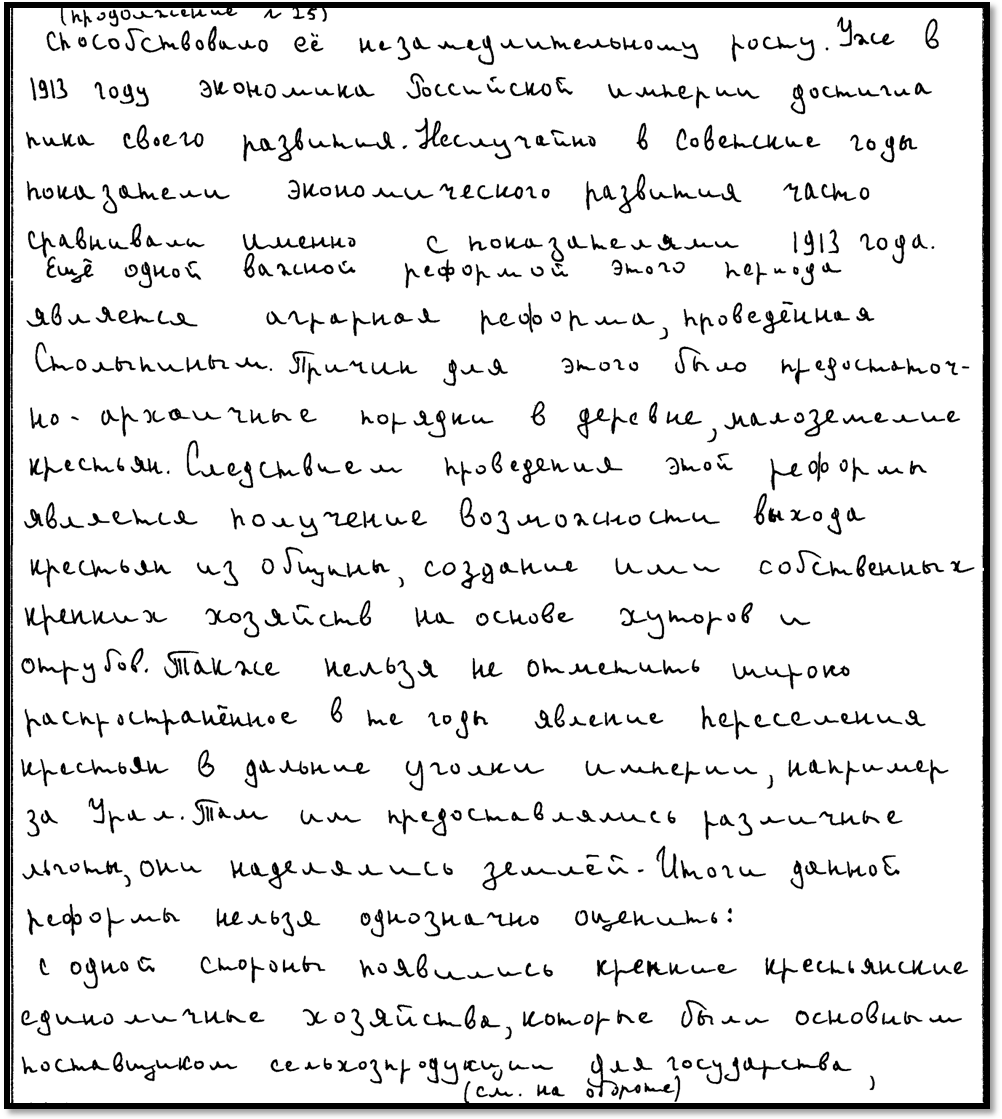 (продолжение № 25)
способствовало её незамедлительному росту. Уже в
1913 году экономика Российской империи достигла
пика своего развития. Неслучайно в Советские годы
показатели экономического развития часто
сравнивали именно с показателями 1913 года.
Ещё одной важной реформой этого периода
является аграрная реформа, проведённая
Столыпиным. Причин для этого было предостаточ-
но - архаичные порядки в деревне, малоземелие
крестьян. Следствием проведения этой реформы
является получение возможности выхода
крестьян из общины, создание ими собственных
крепких хозяйств на основе хуторов и
отрубов. Также нельзя не отметить широко
распространённое в те годы явление переселения
крестьян в дальние уголки империи, например
за Урал. Там им предоставлялись различные
льготы, они наделялись землёй. Итоги данной
реформы нельзя однозначно оценить:
с одной стороны появились крепкие крестьянские
единоличные хозяйства, которые были основным
поставщиком сельхозпродукции для государства,
(см. на обороте)